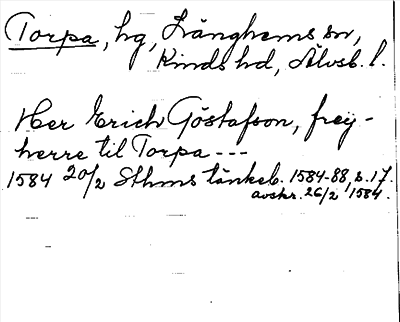 Torpa, hg, Länghems sn,
Kinds hd, Älvsb. l.
Her Erich Göstafson, frey-
herre til Torpa ---
1584 20/2 Sthms tänkeb. 1584-88, s. 17.
avskr. 26/2 1584.